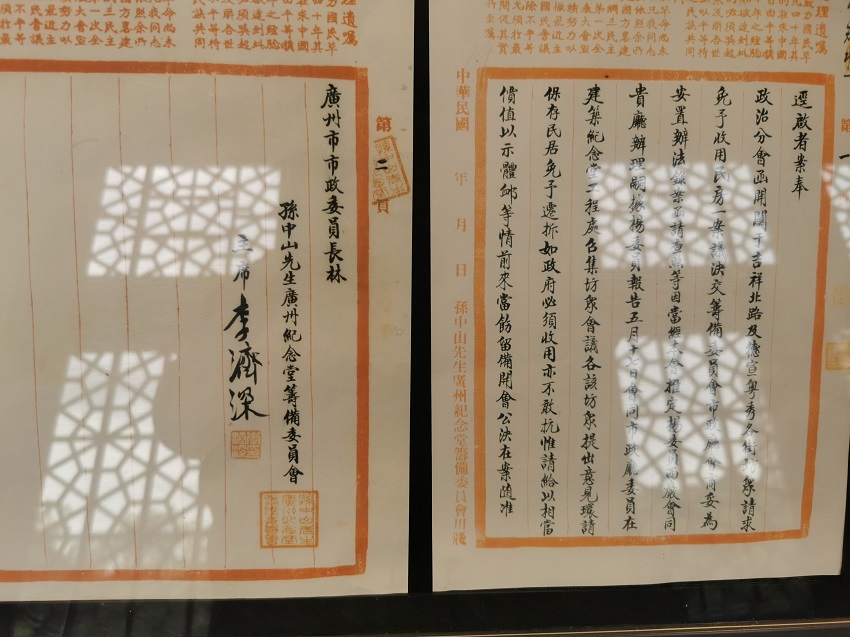 第一
理遺囑
力國民革
逕啟者案奉
政治分會函開關于吉祥北路及德宣粵秀各街坊眾請求
免予收用民房一案議決交籌備委員會市政廳會同妥為
安置辦法錄案函請查照等因當經本會推定楊委員西巖會同
貴廳辦理嗣據楊委員報告五月十七日會同市政廳委員在
建築紀念堂工程處召集坊眾會議各該坊眾提出意見環請
保存民居免予遷拆如政府必須收用亦不敢抗惟請給以相當
價值以示體卹等情前來當飭留備開會公決在案隨准
中華民國 年 月 日 孫中山先生廣州紀念堂籌備委員會用牋
理遺囑
力國民革
第二頁
廣州市市政委員長林
孫中山先生廣州紀念堂籌備委員會
主席李濟深